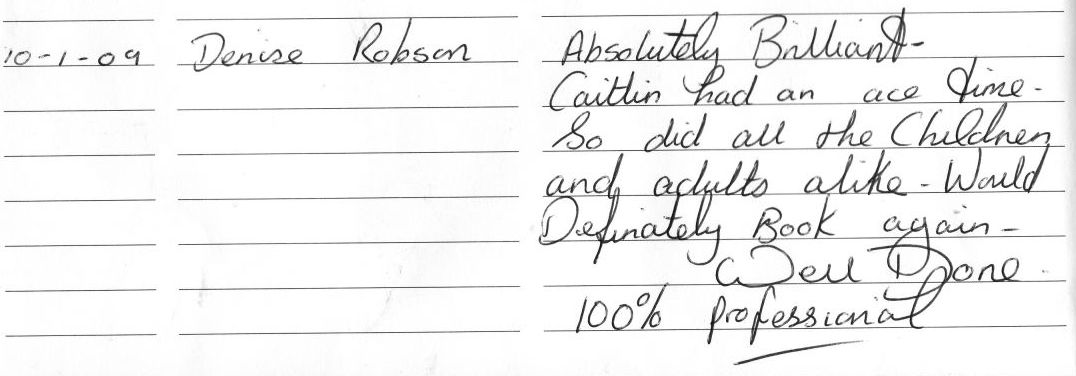 10-1-09 Denise Robson Absolutely Brilliant-
Caitlin had an ace time.
So did all the Children
and adults alike - Would
Definately Book again -
Well Done.
100% professional